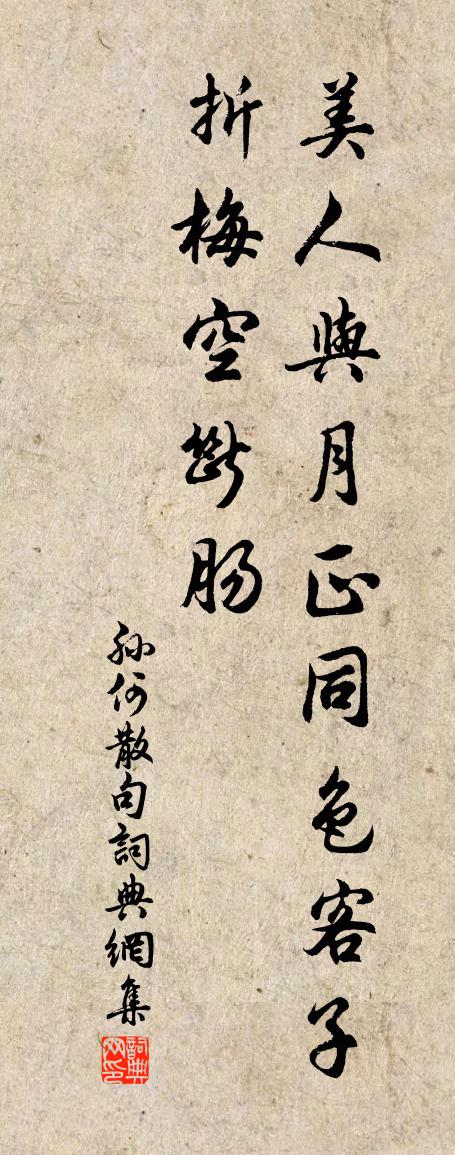 美人與月正同色客子
折梅空斷腸
孫何散句詞典網集
詞典网印